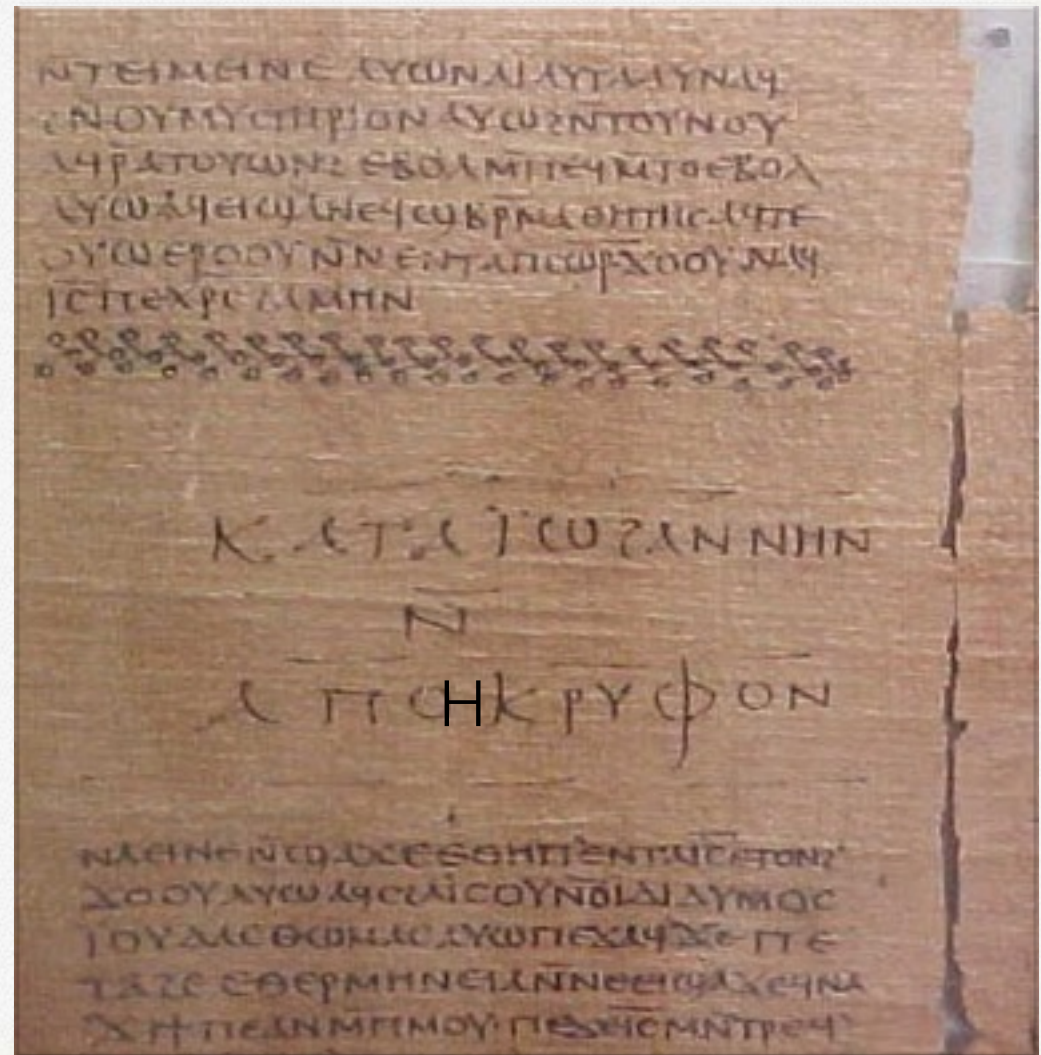 ⲛⲧⲉⲓⲙⲉⲓⲛⲉ ⲁⲩⲱⲛⲁⲓ ⲁⲩⲧⲁⲁⲩⲛⲁϥ
ϩⲛ̄ⲟⲩⲙⲩⲥⲧⲏⲣⲓⲟⲛ ⲁⲩⲱϩⲛ̄ⲧⲟⲩⲛⲟⲩ
ⲁϥⲣ̄ⲁⲧⲟⲩⲱⲛϩ ⲉⲃⲟⲗ ⲙ̄ⲡⲉϥⲙ̄ⲧⲟⲉⲃⲟⲗ
ⲁⲩⲱ ⲁϥⲉⲓϣⲁⲛⲉϥϣⲃⲣ̄ⲙⲁⲑⲏⲧⲏⲥⲁϥⲧⲉ
ⲟⲩⲱ ⲉⲣⲟⲟⲩ ⲛ̄ⲛⲉⲛⲧⲁⲡⲥⲱ̄ⲣ̄ϫⲟⲟⲩ ⲛⲁϥ
ⲓ̄ⲥ̄ ⲡⲉⲭⲣ̄ⲥ̄ ϩⲁⲙⲏⲛ
ⲕⲁⲧⲁ ⲓⲱϩⲁⲛⲛⲏⲛ
ⲛ̄
ⲁⲡⲟⲏⲕⲣⲩⲫⲟⲛ
ⲛⲁⲉⲓⲛⲉ ⲛ̄ϣⲁϫⲉ ⲉⲑⲏⲡ ⲉⲛⲧⲁⲓ̄ⲥ̄ⲉⲧⲟⲛϩ
ϫⲟⲟⲩ ⲁⲩⲱ ⲁϥⲥϩⲁⲓ̈ⲥⲟⲩ ⲛ̄ϭⲓⲇⲓⲇⲩⲙⲟⲥ
ⲓⲟⲩⲇⲁⲥ ⲑⲱⲙⲁⲥ ⲁⲩⲱ ⲡⲉϫⲁϥ ϫⲉ ⲡⲉ
ⲧⲁϩⲉ ⲉⲑⲉⲣⲙⲏⲛⲉⲓⲁ ⲛ̄ⲛⲉⲉⲓϣⲁϫⲉ ϥⲛⲁ